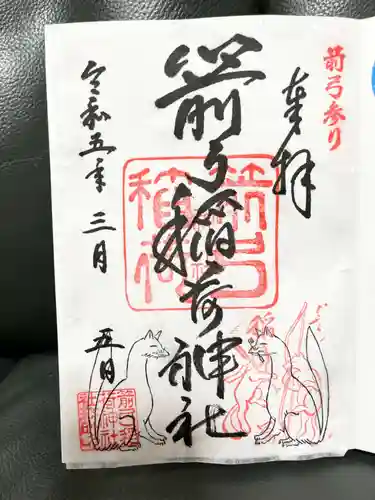 箭弓参り
奉拝
箭弓稲荷神社
令和五年三月五日
箭弓稲荷